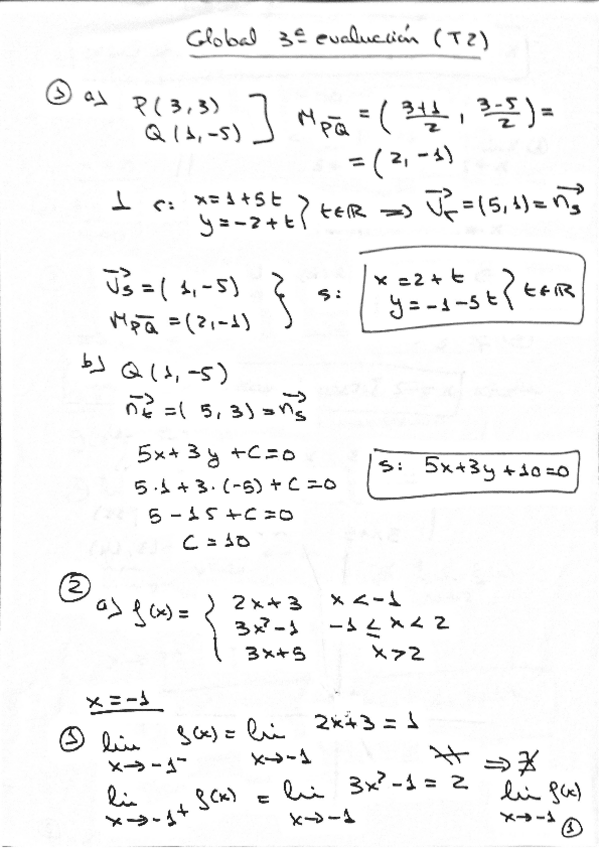 Global 3ª evaluación (T2)
① a) P(3,3)
Q(1,-5) ] M_PQ = ( 3+1/2 , 3-5/2 ) =
= (2,-1)
⊥ r: x=1+5t
y=-2+t } t∈ℝ ⇒ v_r=(5,1)=n_s
v_s=(1,-5)
M_PQ=(2,-1) } s: x=2+t
y=-1-5t } t∈ℝ
b) Q(1,-5)
n_t=(5,3)=n_s
5x+3y+C=0
5·1+3·(-5)+C=0
5-15+C=0
C=10
s: 5x+3y+10=0
②
a) f(x)= { 2x+3 x<-1
3x²-1 -1≤x<2
3x+5 x>2
x=-1
① lim f(x) = lim 2x+3 = 1
x→-1⁻ x→-1
≠ ⇒ ∄
lim f(x) = lim 3x²-1 = 2 lim f(x)
x→-1⁺ x→-1 x→-1
①